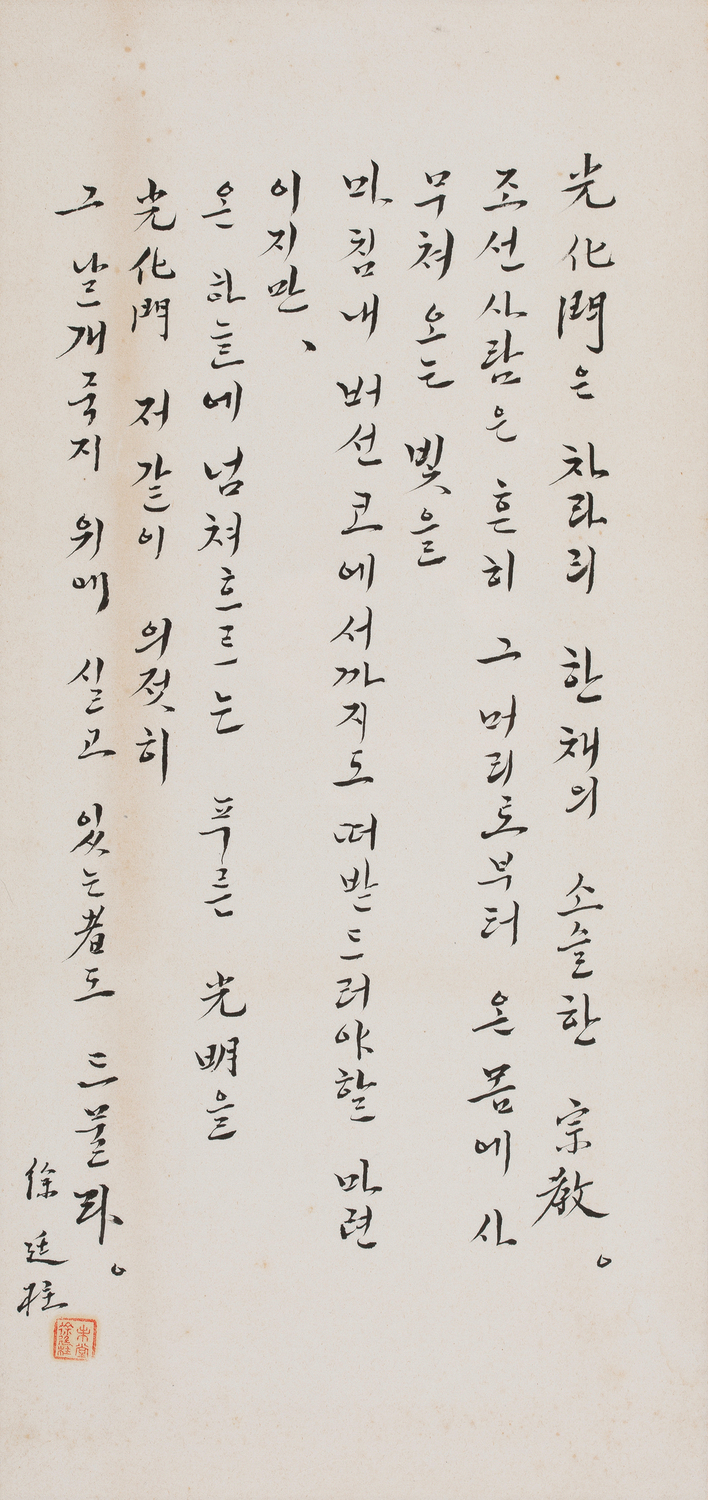 光化門은 차라리 한채의 소슬한 宗敎。
조선사람은 흔히 그 머리로부터 온몸에 사
무쳐오는 빛을
마침내 버선코에서까지도 떠받드러야할 마련
이지만、
온 하늘에 넘쳐흐르는 푸른 光明을
光化門 저같이 의젓히
그 날개쭉지 위에 실고 있는者도 드물라。
徐廷柱
未堂
徐廷柱